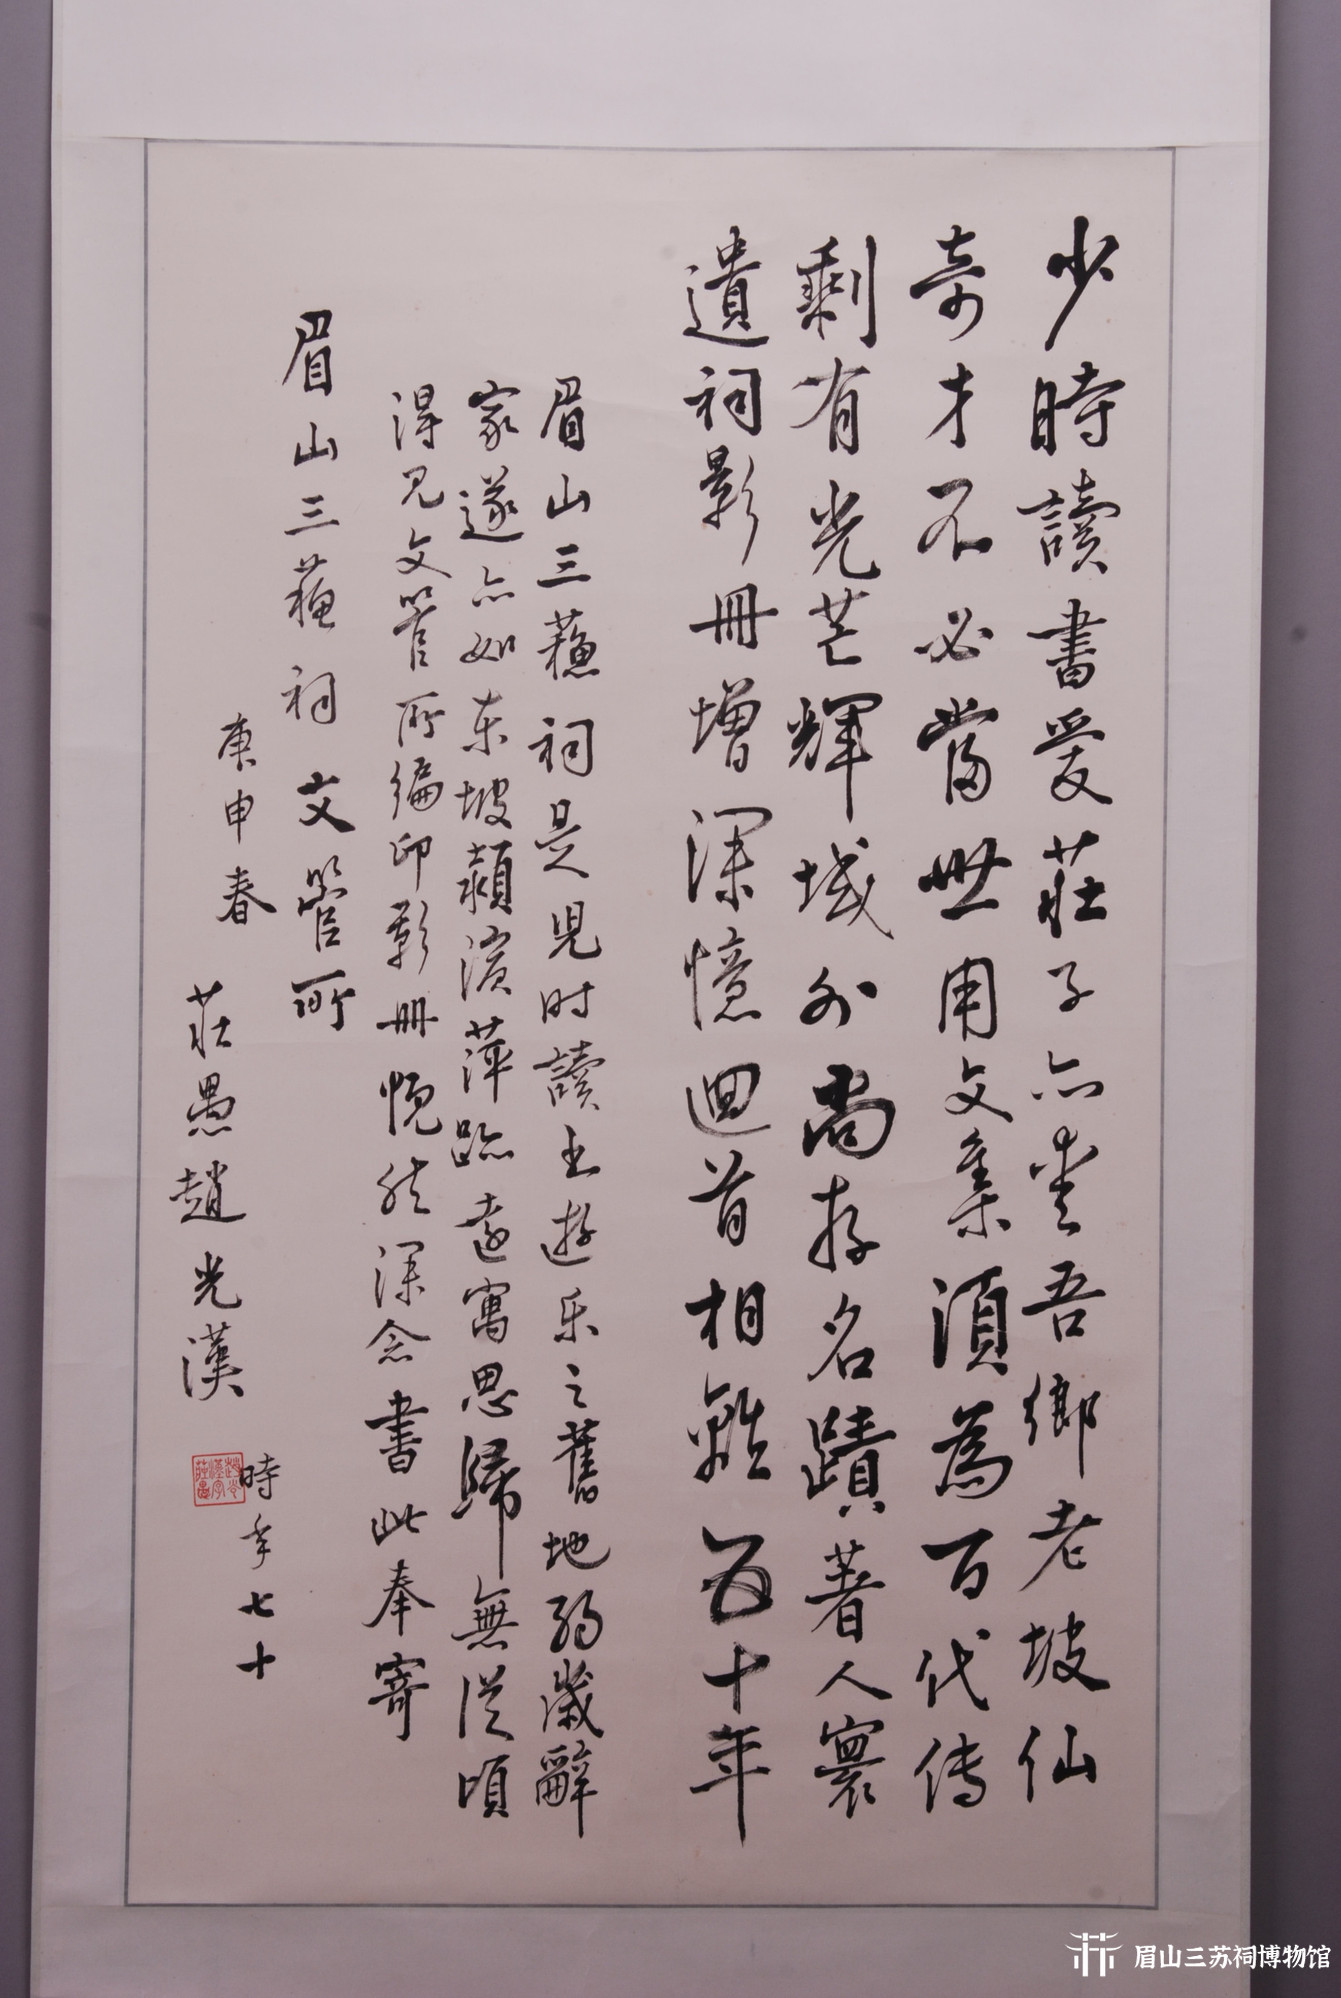 少時讀書愛莊子亦愛吾鄉老坡仙
奇才不必當世用文集須為百代传
剩有光芒輝域外尚存名蹟著人寰
遺祠影冊增深憶迴首相離五十年
眉山三蘓祠是児时讀书遊乐之舊地弱歲辭
家遂亦如东坡潁濱萍跡远寓思歸無从頃
得见文管所编印影册怳然深念書此奉寄
眉山三蘓祠文管所
庚申春
莊愚趙光漢
時年七十
眉山三苏祠博物馆